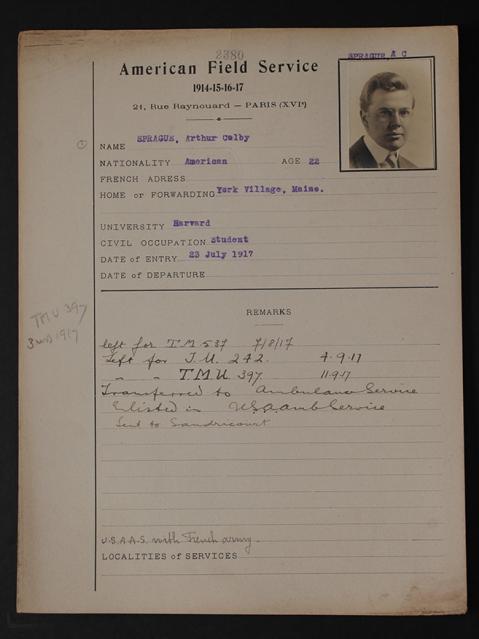 2380
SPRAGUE, A C
American Field Service
1914-15-16-17
21, Rue Raynouard — PARIS (XVIe)
NAME SPRAGUE, Arthur Colby
NATIONALITY American AGE 22
FRENCH ADRESS
HOME or FORWARDING York Village, Maine.
UNIVERSITY Harvard
CIVIL OCCUPATION Student
DATE of ENTRY 23 July 1917
DATE of DEPARTURE
REMARKS
TMU 397
left for T M 537 7/8/17
Left for T.U. 242. 4.9.17
" " T.M.U. 397. 11.9.17
Transferred to Ambulance Service
Enlisted in U.S.A. Amb Service
Sent to Sandricourt
U.S.A.A.S. with French army.
LOCALITIES of SERVICES